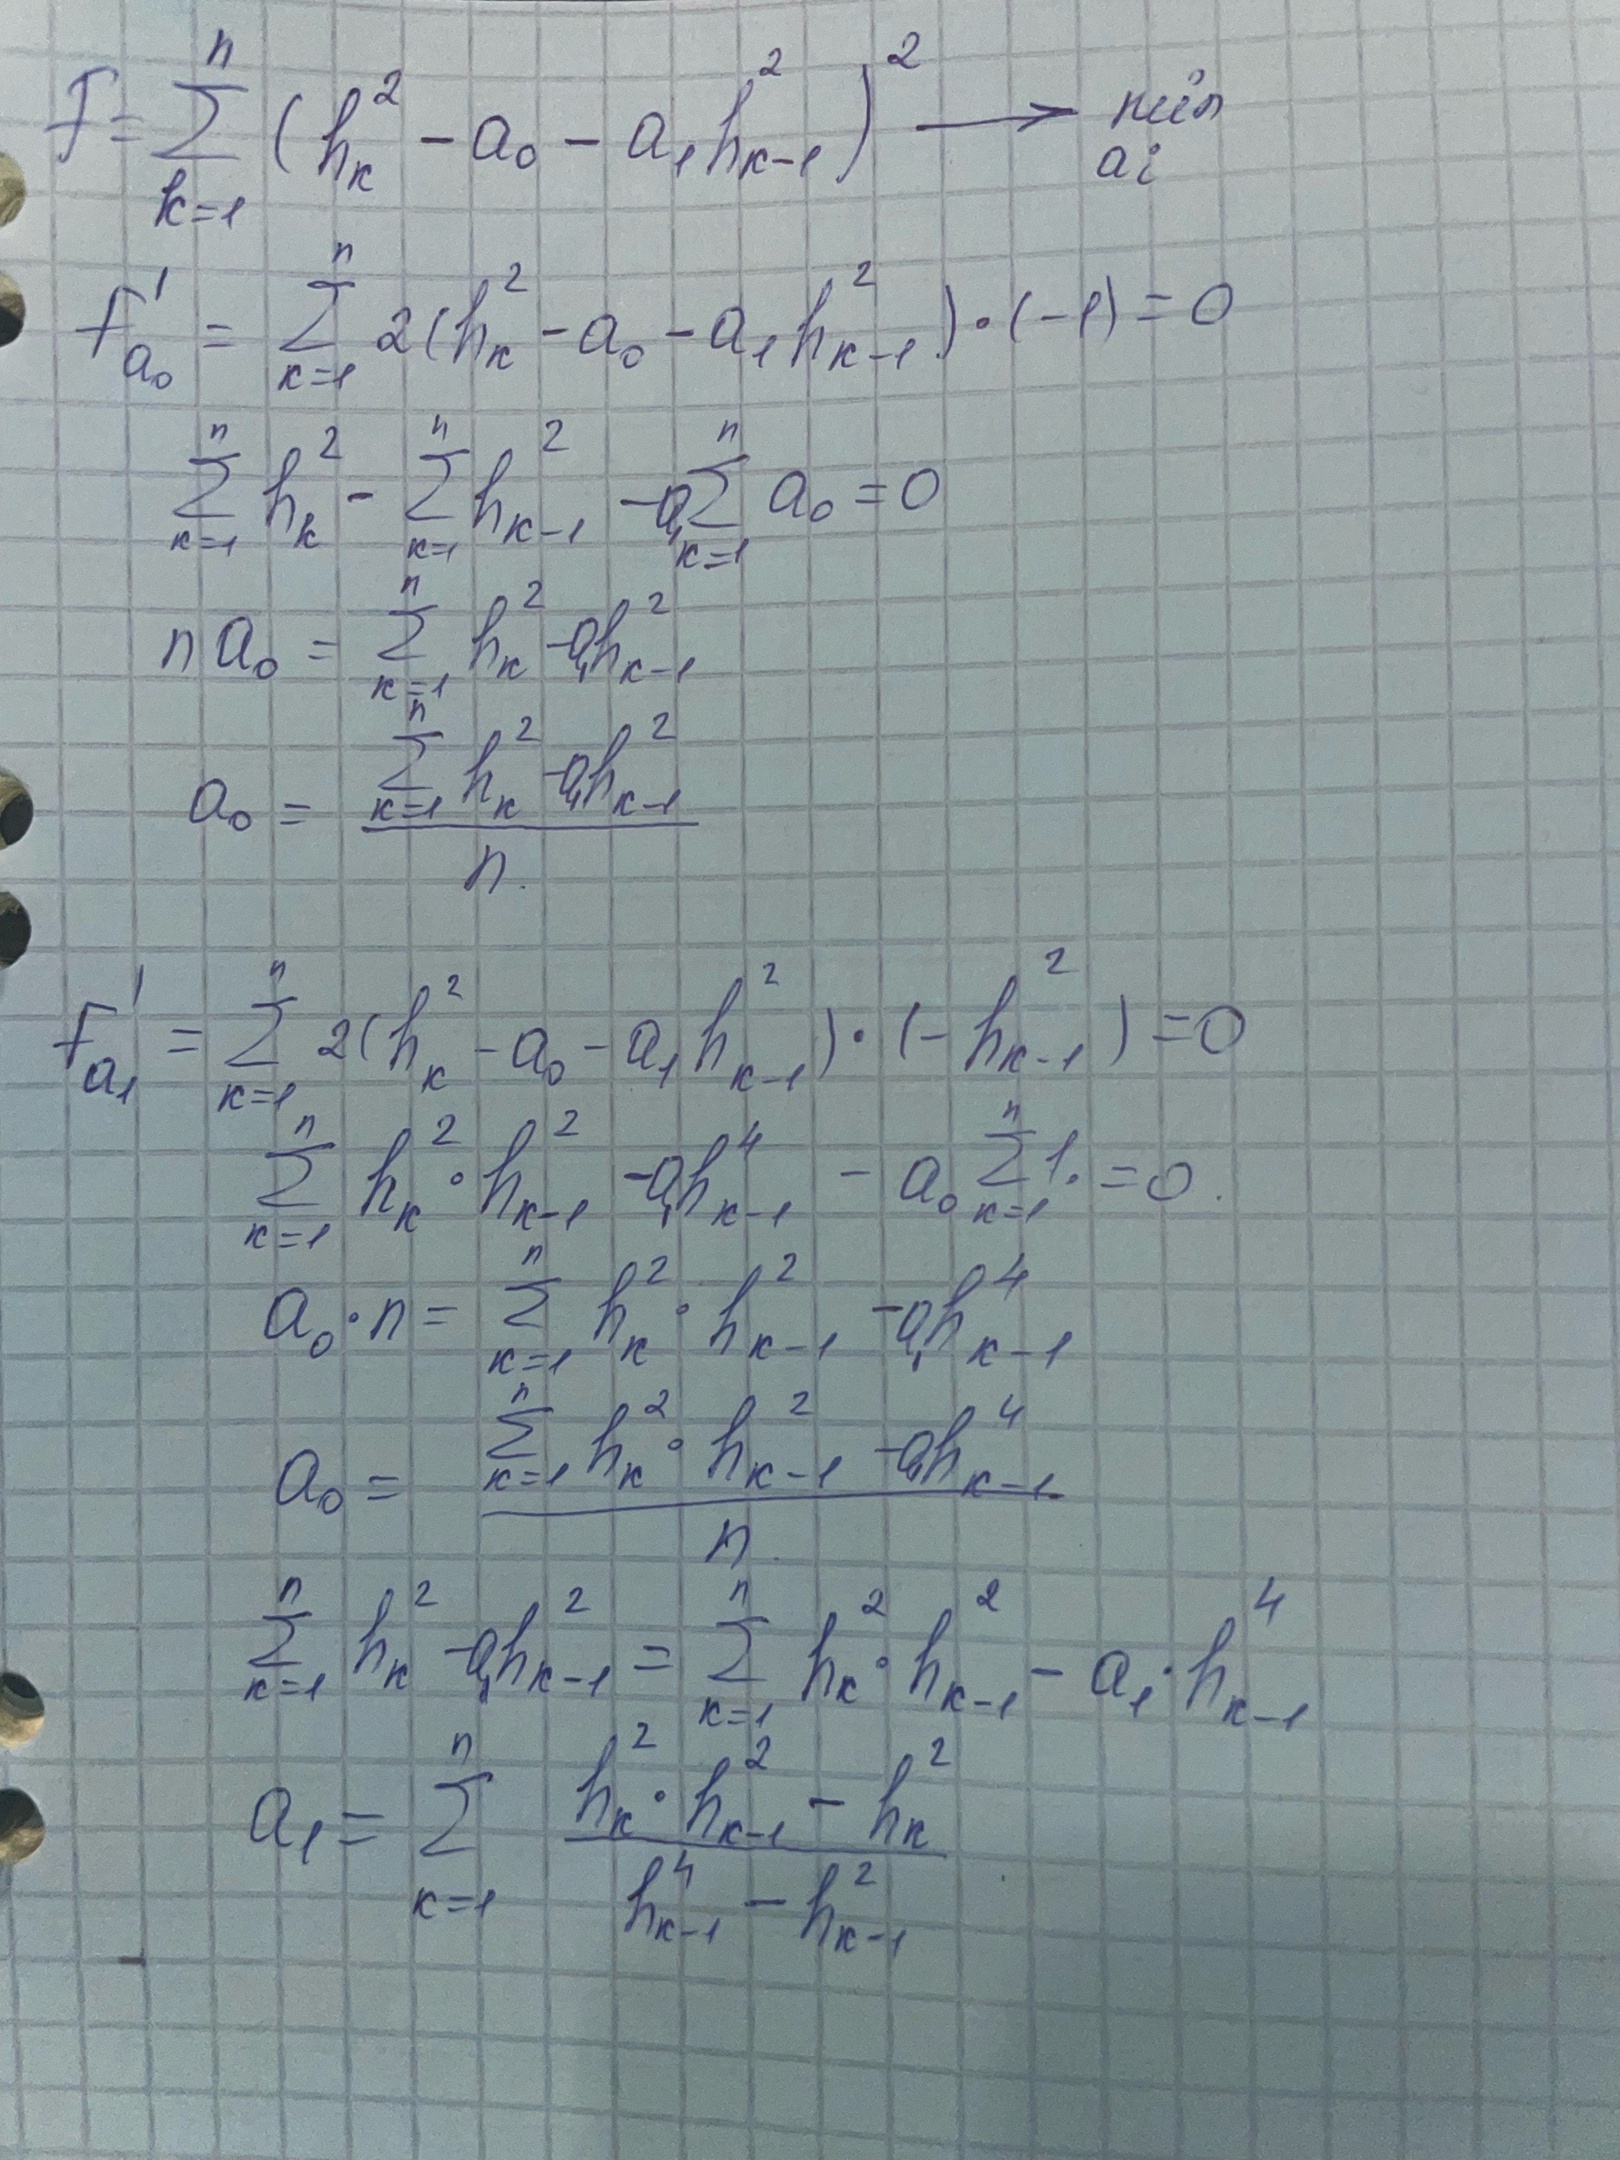 F = \sum_{k=1}^{n} (h_k^2 - a_0 - a_1 h_{k-1}^2)^2 \longrightarrow \min_{a_i}
F'_{a_0} = \sum_{k=1}^{n} 2(h_k^2 - a_0 - a_1 h_{k-1}^2) \cdot (-1) = 0
\sum_{k=1}^{n} h_k^2 - \sum_{k=1}^{n} h_{k-1}^2 - a_1 \sum_{k=1}^{n} a_0 = 0
n a_0 = \sum_{k=1}^{n} h_k^2 - a_1 h_{k-1}^2
a_0 = \frac{\sum_{k=1}^{n} h_k^2 - a_1 h_{k-1}^2}{n.}
F'_{a_1} = \sum_{k=1}^{n} 2(h_k^2 - a_0 - a_1 h_{k-1}^2) \cdot (-h_{k-1}^2) = 0
\sum_{k=1}^{n} h_k^2 \cdot h_{k-1}^2 - a_1 h_{k-1}^4 - a_0 \sum_{k=1}^{n} 1. = 0.
a_0 \cdot n = \sum_{k=1}^{n} h_k^2 \cdot h_{k-1}^2 - a_1 h_{k-1}^4
a_0 = \frac{\sum_{k=1}^{n} h_k^2 \cdot h_{k-1}^2 - a_1 h_{k-1}^4}{n.}
\sum_{k=1}^{n} h_k^2 - a_1 h_{k-1}^2 = \sum_{k=1}^{n} h_k^2 \cdot h_{k-1}^2 - a_1 \cdot h_{k-1}^4
a_1 = \sum_{k=1}^{n} \frac{h_k^2 \cdot h_{k-1}^2 - h_k^2}{h_{k-1}^4 - h_{k-1}^2}